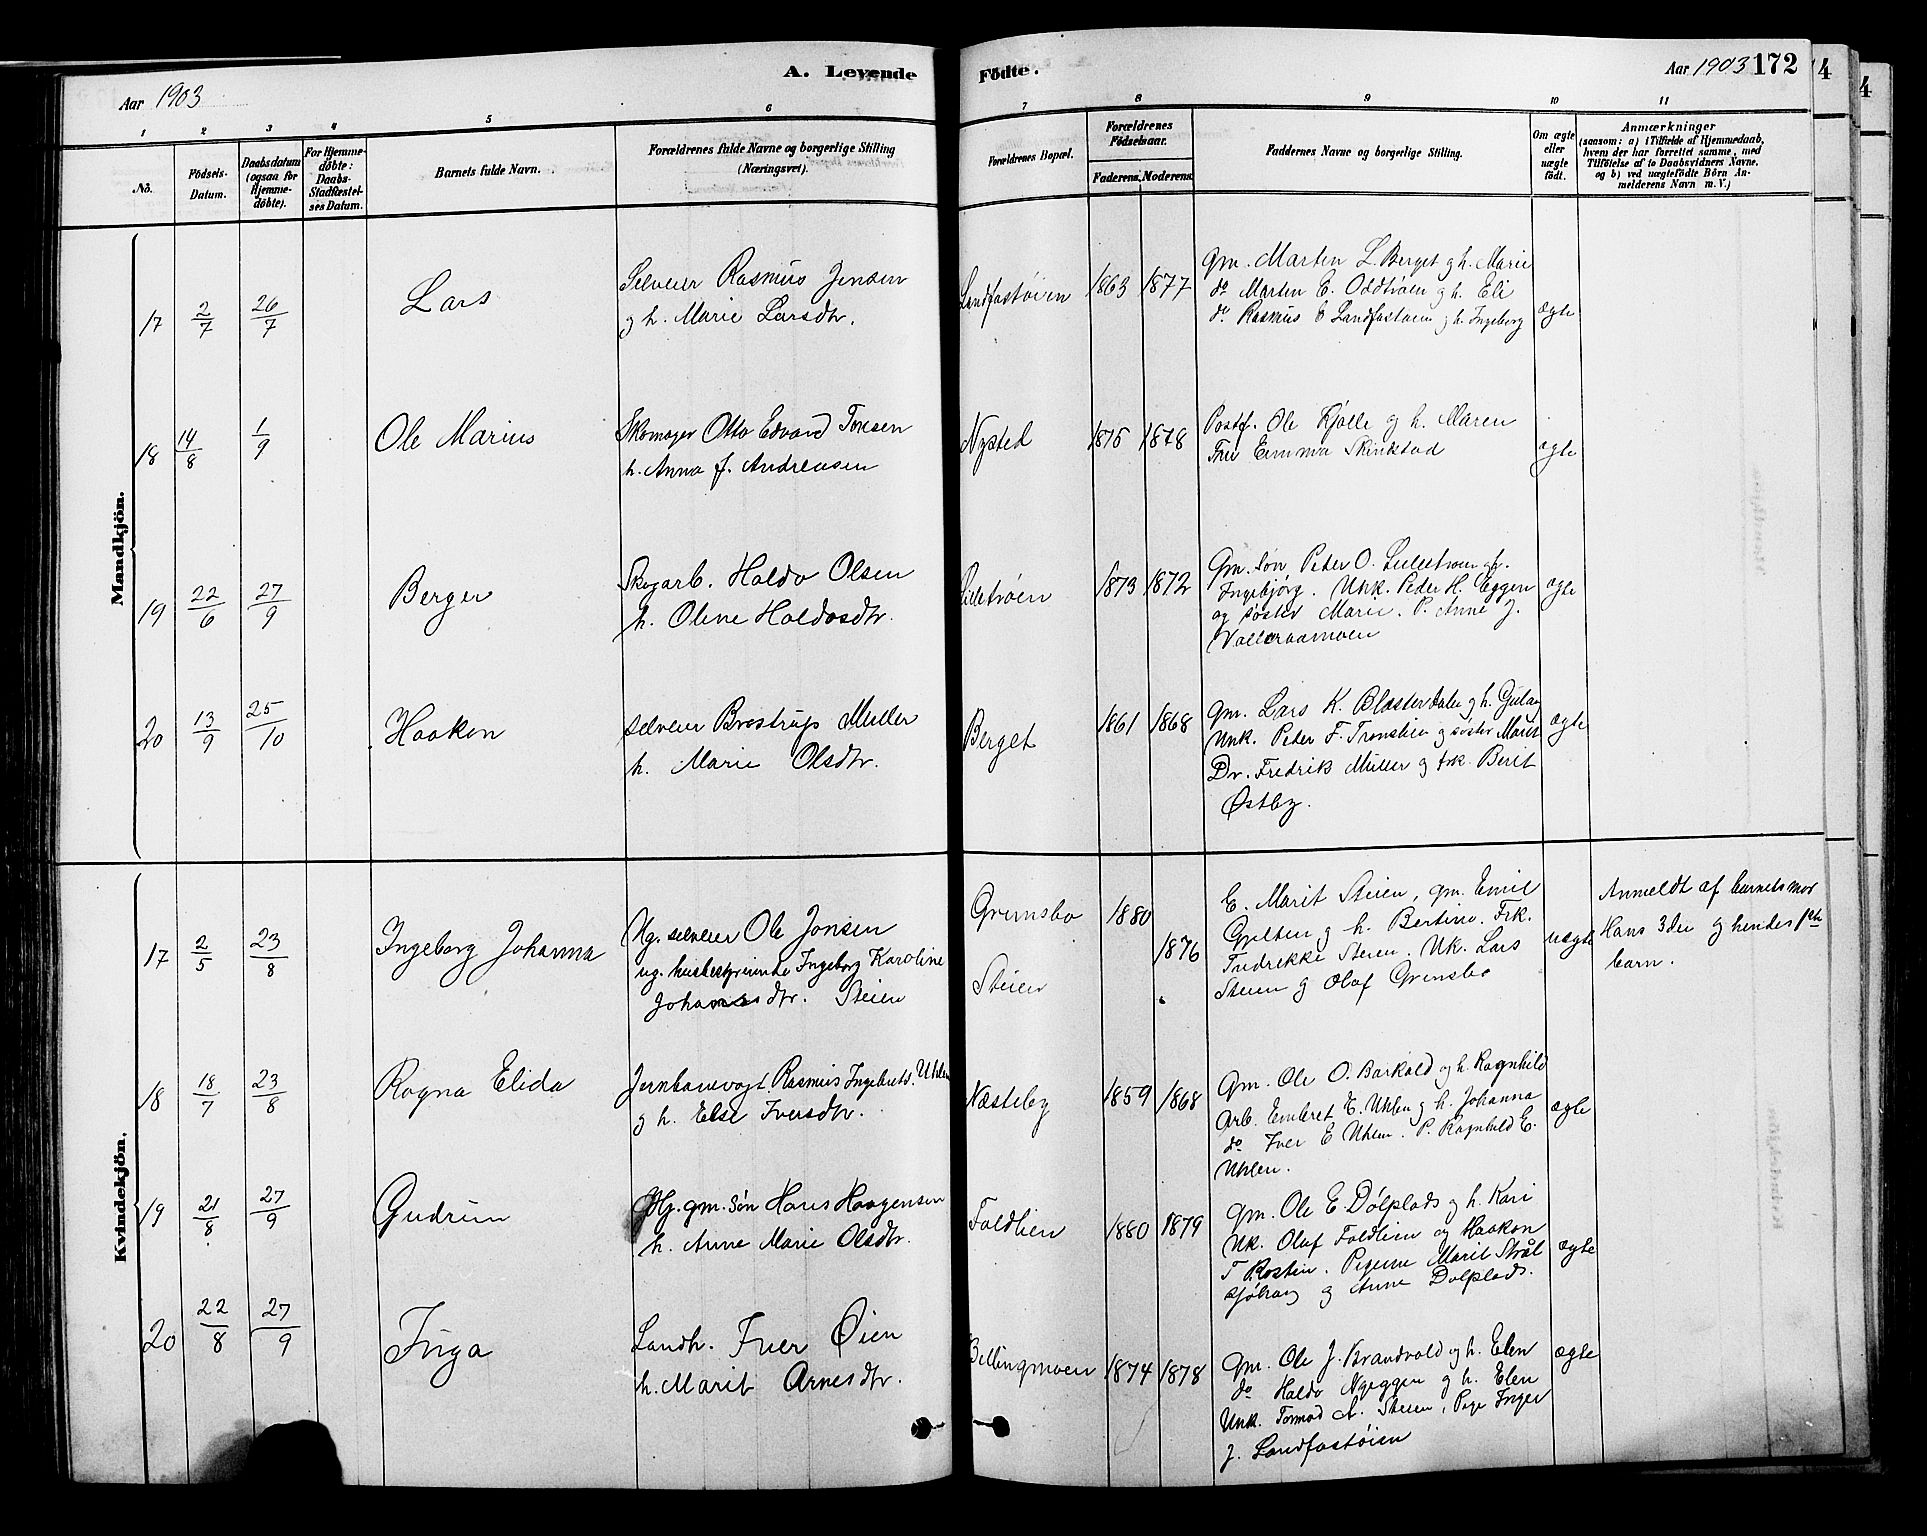 A. Levende
Fødte.
Aar 1903
Aar 1903
172
4
4
1
2
3
4
5
6
7
8
9
10
11
No.
Fødsels-
Datum.
Daabsdatum
(ogsaa for
Hjemme-
døbte).
For Hjemme-
døbte:
Daabs-
Stadfæstel-
ses Datum.
Barnets fulde Navn.
Forældrenes fulde Navne og borgerlige Stilling
(Næringsvei).
Forældrenes Bopæl.
Forældrenes
Fødselsaar.
Faderens.
Moderens.
Faddernes Navne og borgerlige Stilling.
Om ægte
eller
uægte
født.
Anmærkninger
(saasom: a) i Tilfælde af Hjemmedaab,
hvem der har forrettet samme, med
Tilføielse af to Daabsvidners Navne,
og b) ved uægtefødte Børn An-
melderens Navn m. V.)
Mandkjön.
17
2/7
26/7
Lars
Selveier Rasmus Jensen
og h. Marie Larsdtr.
Landfastøien
1863
1877
Gm. Marten L. Berget og h. Marie
do Marten E. Oddtrøen og h. Eli
do Rasmus E Landfastøien og h. Ingeborg
ægte
18
14/8
1/9
Ole Marius
Skomager Otto Edvard Tonsen
h. Anna f. Andreasen
Nysted
1875
1878
Postf. Ole Kjølle og h. Maren
Fru Emma Skinstad
ægte
19
22/6
27/9
Berger
Skogarb. Haldo Olsen
h. Oline Haldosdtr.
Lilletrøen
1873
1872
Gm. søn Peter O. Lilletrøen og h.
Ingebjørg. Unk. Peder H. Eggen
og søster Marie. P. Anne J.
Volleraamoen
ægte
20
13/9
25/10
Haakon
selveier Brostrup Müller
h. Marie Olsdtr.
Berget
1861
1868
Gm. Lars K. Blæsterdalen og h. Gulau
Unk. Peder F. Tronslien og søster Marit
Dr. Fredrik Müller og frk. Berit
Østby.
ægte
Kvindekjön.
17
2/5
23/8
Ingeborg Johanna
Ug. selveier Ole Jonsen
ug. husbestyrerinde Ingeborg Karoline
Johannesdtr. Steien
Grimsbo
Steien
1880
1876
E. Marit Steien, gm. Emil
og h. Bertine. Frk.
Fredrikke Steien. Uk. Lars
Steien og Olaf Grimsbo
uægte
Anmeldt af barnets mor
Hans 3die og hendes 1ste
barn.
18
18/7
23/8
Ragna Elida
Jernbanevogt Rasmus Ingebretd. Uhlen
og h. Else Iversdtr.
Næsteby
1859
1868
Gm. Ole O. Barkald og h. Ragnhild
Arb. Embret E. Uhlen og h. Johanna
do Iver E Uhlen. P. Ragnhild E.
Uhlen.
ægte
19
21/8
27/9
Gudrun
gm. søn Hans Haagensen
h. Anne Marie Olsdtr.
Foldlien
1880
1879
Gm. Ole E. Dølplads og h. Kari
Uk. Olaf Foldlien og Haakon
T Rosten. Pigerne Marit Strål
sjøhaug og Anne Dølplads.
ægte
20
22/8
27/9
Inga
Landh. Iver Øien
h. Marit Arnesdtr.
Bellingmoen
1874
1878
Gm. Ole J. Brandvold og h. Elen
do Haldo Nyeggen og h. Elen
Unk. Tormod A. Steien, Pige Inger
J. Landfastøien
ægte